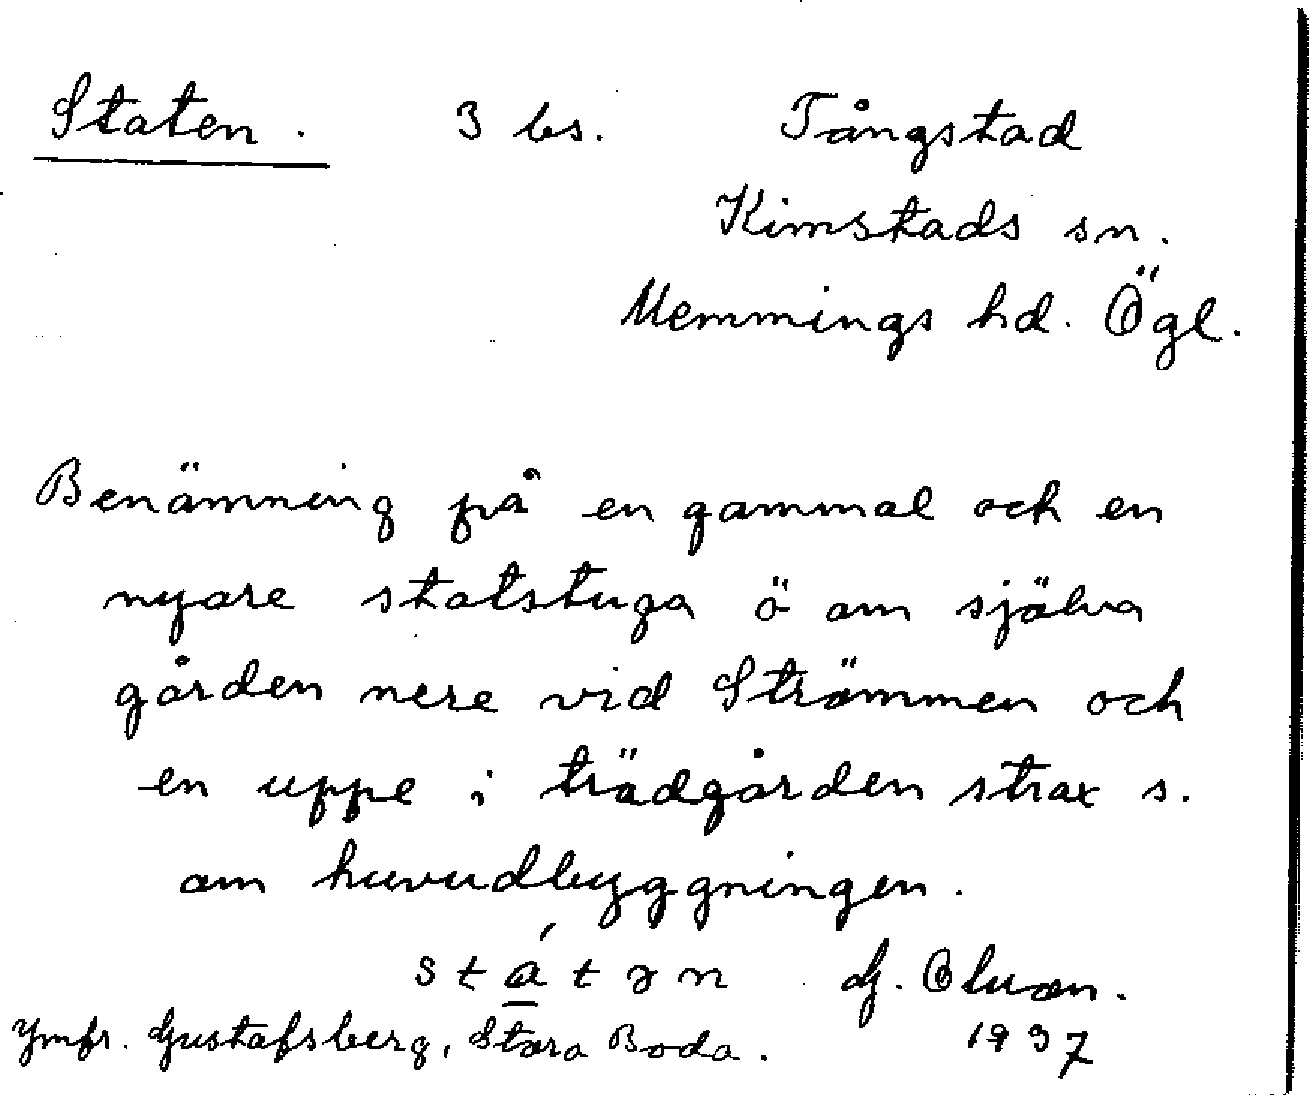 Staten. 3 bs. Tångstad
Kimstads sn.
Memmings hd. Ögl.
Benämning på en gammal och en
nyare statstuga ö om själva
gården nere vid Strömmen och
en uppe i trädgården strax s.
om huvudbyggningen.
státən G.
Ymfr. Gustafsberg, Stora Boda. 1937